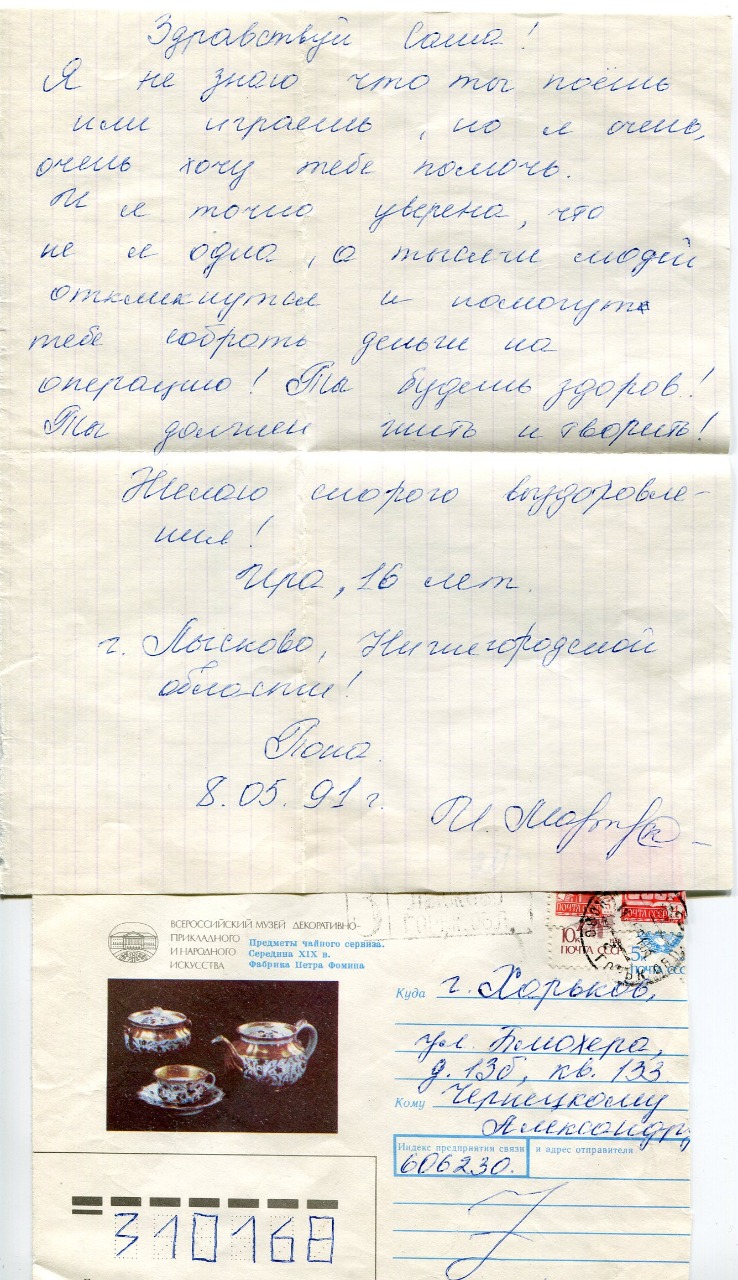 Здравствуй Саша!
Я не знаю что ты поёшь
или играешь, но я очень,
очень хочу тебе помочь.
И я точно уверена, что
не я одна, а тысячи людей
откликнутся и помогут
тебе собрать деньги на
операцию! Ты будешь здоров!
Ты должен жить и творить!
Желаю скорого выздоровле-
ния!
Ира, 16 лет.
г. Лысково, Нижегородской
области!
Пока.
8.05.91 г.
ВСЕРОССИЙСКИЙ МУЗЕЙ ДЕКОРАТИВНО-
ПРИКЛАДНОГО
И НАРОДНОГО
ИСКУССТВА
Предметы чайного сервиза.
Середина XIX в.
Фабрика Петра Фомина
ПОЧТА СССР
ПОЧТА СССР
10к
ПОЧТА СССР
5к
ПОЧТА СССР
Куда г. Харьков,
ул. Блюхера,
д. 13б, кв. 133
Кому Чернецкому
Александру
Индекс предприятия связи и адрес отправителя
606230.
310168